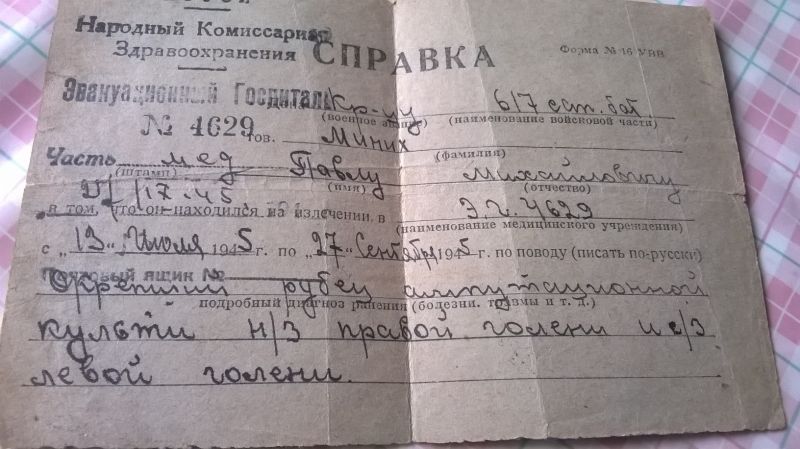 Народный Комиссариат
Здравоохранения
СПРАВКА
Форма № 16 УВВ
Эвакуационный Госпиталь
№ 4629
Кр-цу 617 сап. бат
(военное звание) (наименование войсковой части)
тов. Миних
(фамилия)
Часть мед Павлу Михайловичу
(штамп) (имя) (отчество)
17.45
в том, что он находился на излечении, в Э.Г. 4629
(наименование медицинского учреждения)
с „13" Июля 1945 г. по „27" Сентября 1945 г. по поводу (писать по-русски)
Почтовый ящик №
Окрепший рубец ампутационной
подробный диагноз ранения (болезни, травмы и т. д.)
культи н/3 правой голени и с/3
левой голени.